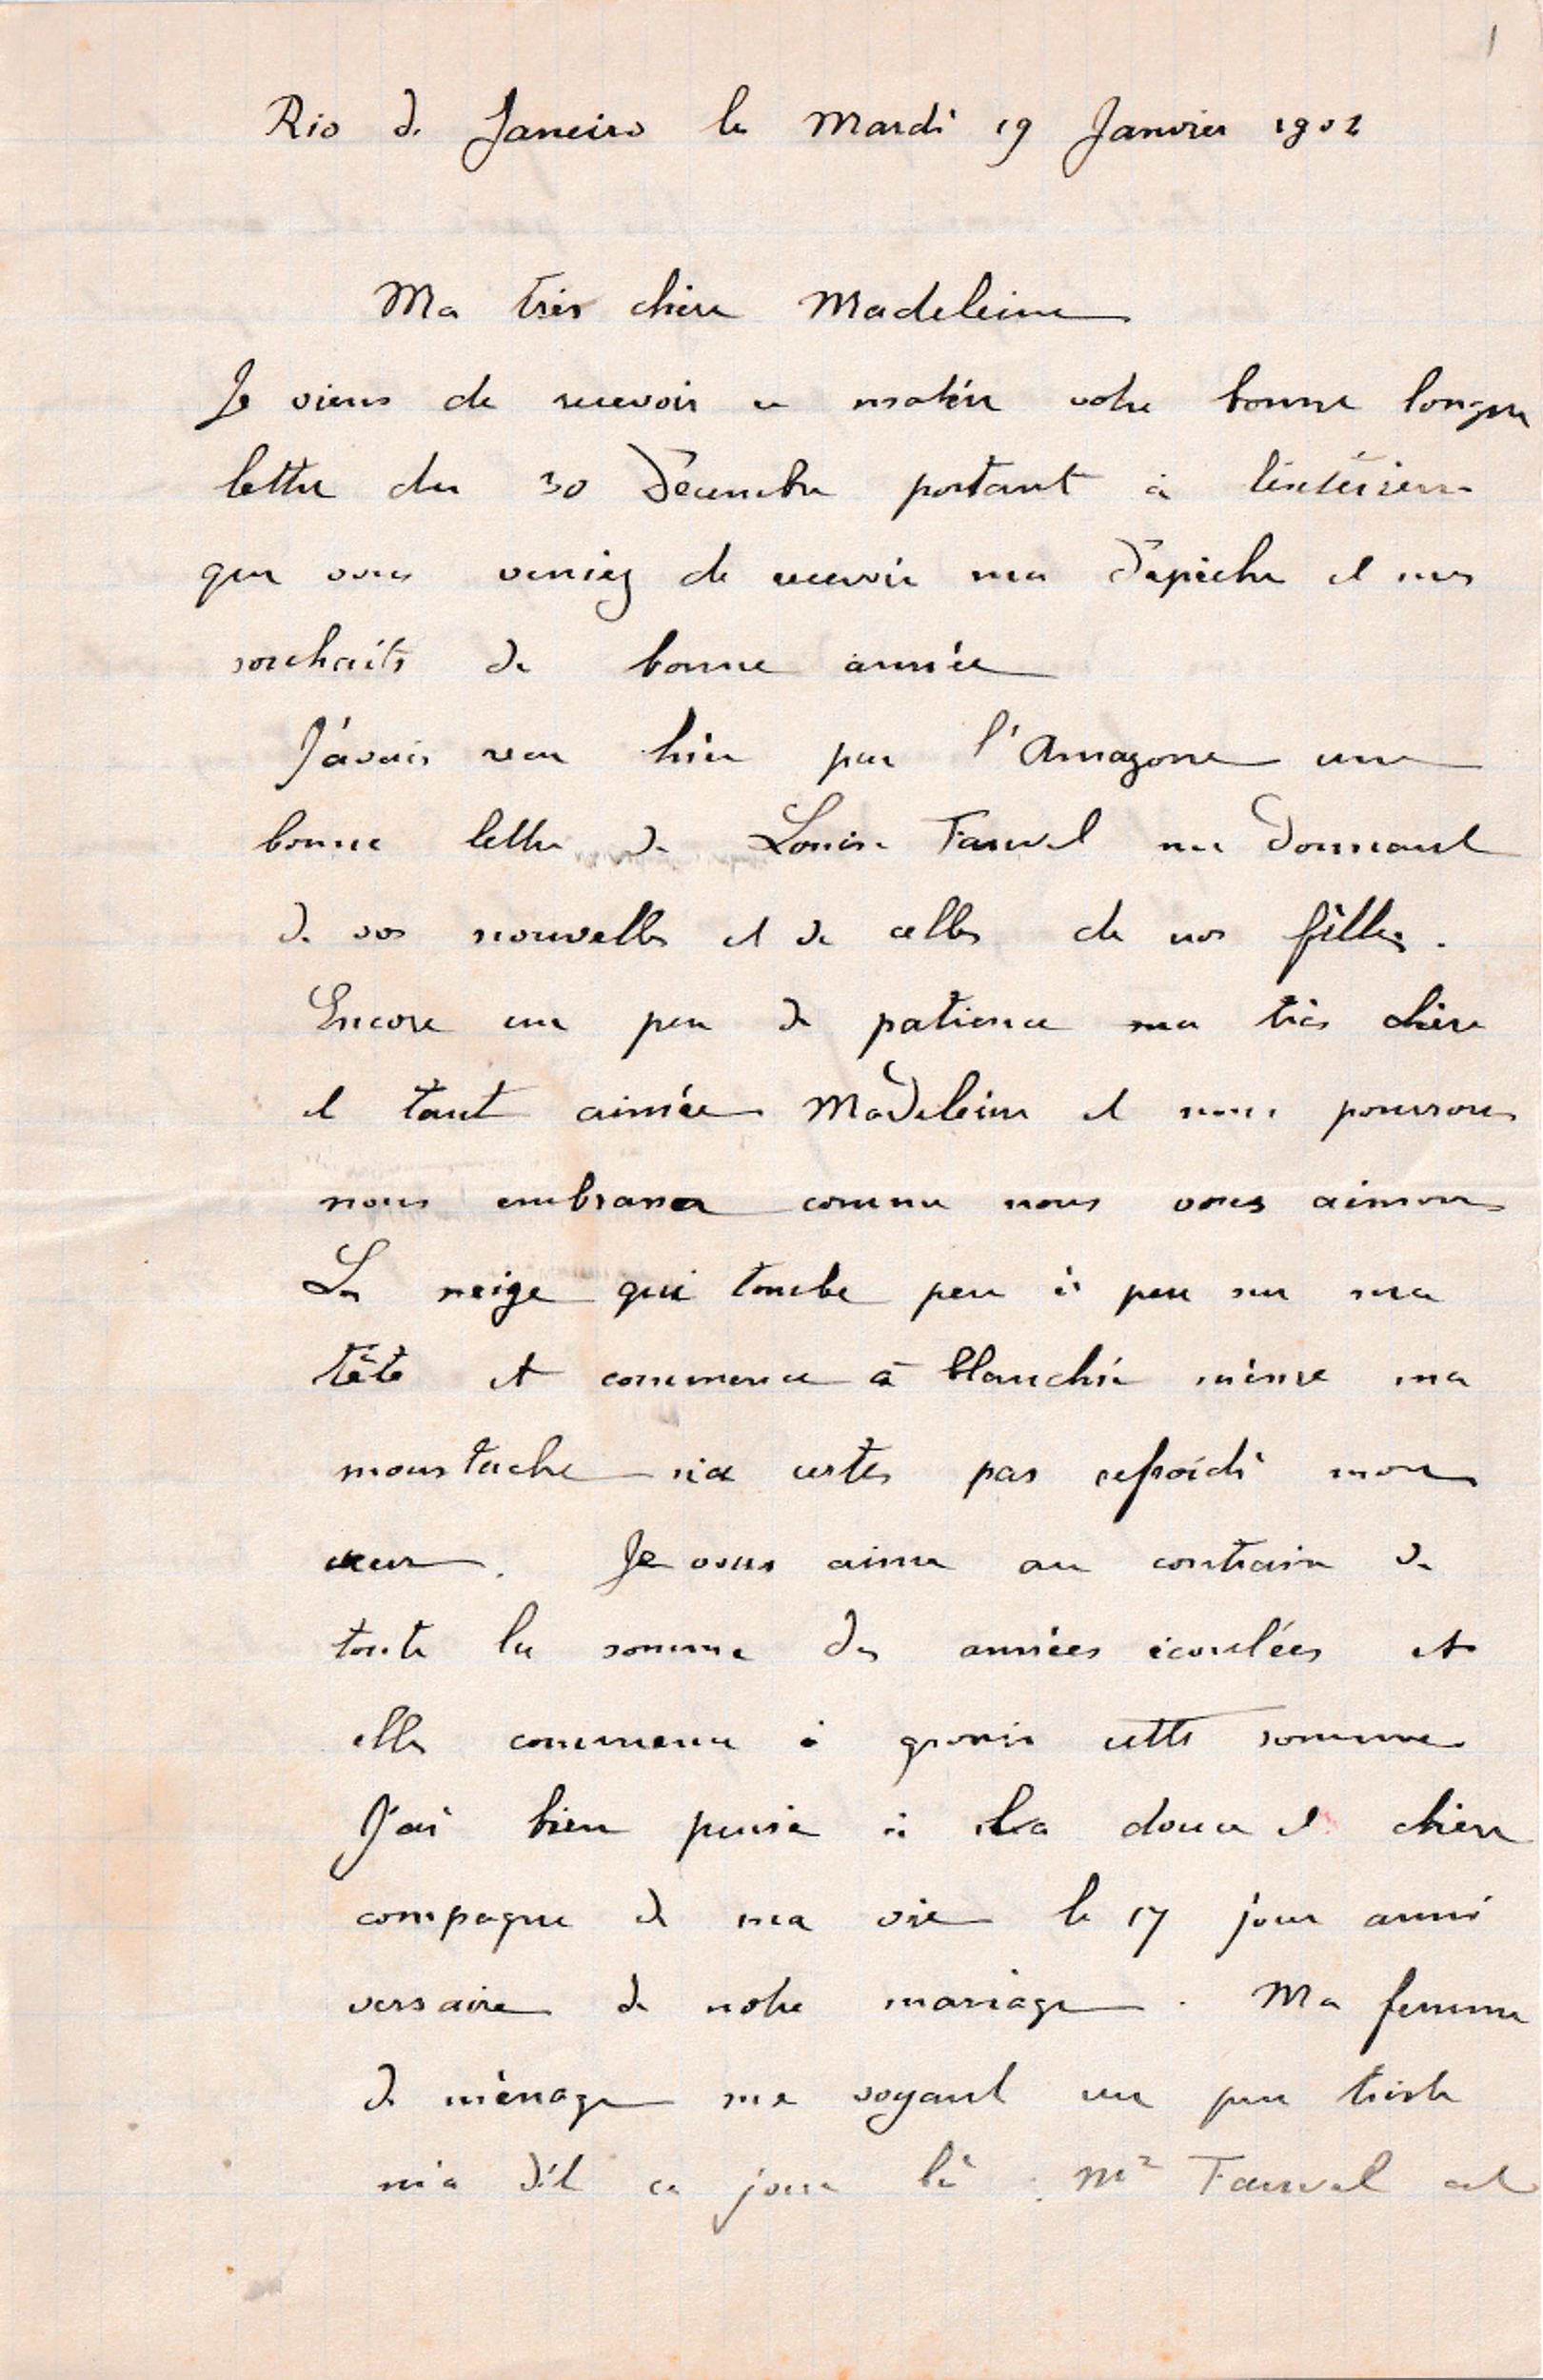 1
Rio de Janeiro le Mardi 19 Janvier 1902
Ma très chère Madeleine
Je viens de recevoir ce matin votre bonne longue
lettre du 30 Décembre portant à l'intérieur
que vous veniez de recevoir ma dépêche et mes
souhaits de bonne année
J'avais reçu hier par l'Amazone une
bonne lettre de Louise Fauvel me donnant
de vos nouvelles et de celles de nos filles.
Encore un peu de patience ma très chère
et tant aimée Madeleine et nous pourrons
nous embrasser comme nous nous aimons
La neige qui tombe peu à peu sur ma
tête et commence à blanchir même ma
moustache n'a certes pas refroidi mon
cœur. Je vous aime au contraire de
toute la somme des années écoulées et
elle commence à grossir cette somme
J'ai bien pensé à la douce et chère
compagne de ma vie le 17 jour anni
versaire de notre mariage. Ma femme
de ménage me voyant un peu triste
m'a dit ce jour là. Mr Fauvel est